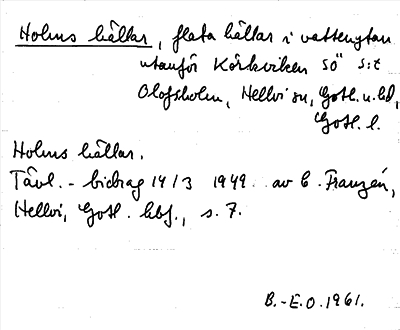 Holms hällar, flata hällar i vattenytan
utanför Körkviken SÖ S:t
Olofsholm, Hellvi sn, Gotl. n. hd,
Gotl. l.
Holms hällar.
Tävl.-bidrag 14/3 1949 av C. Franzén,
Hellvi, Gotl. hbf., s. 7.
B.-E.O. 1961.